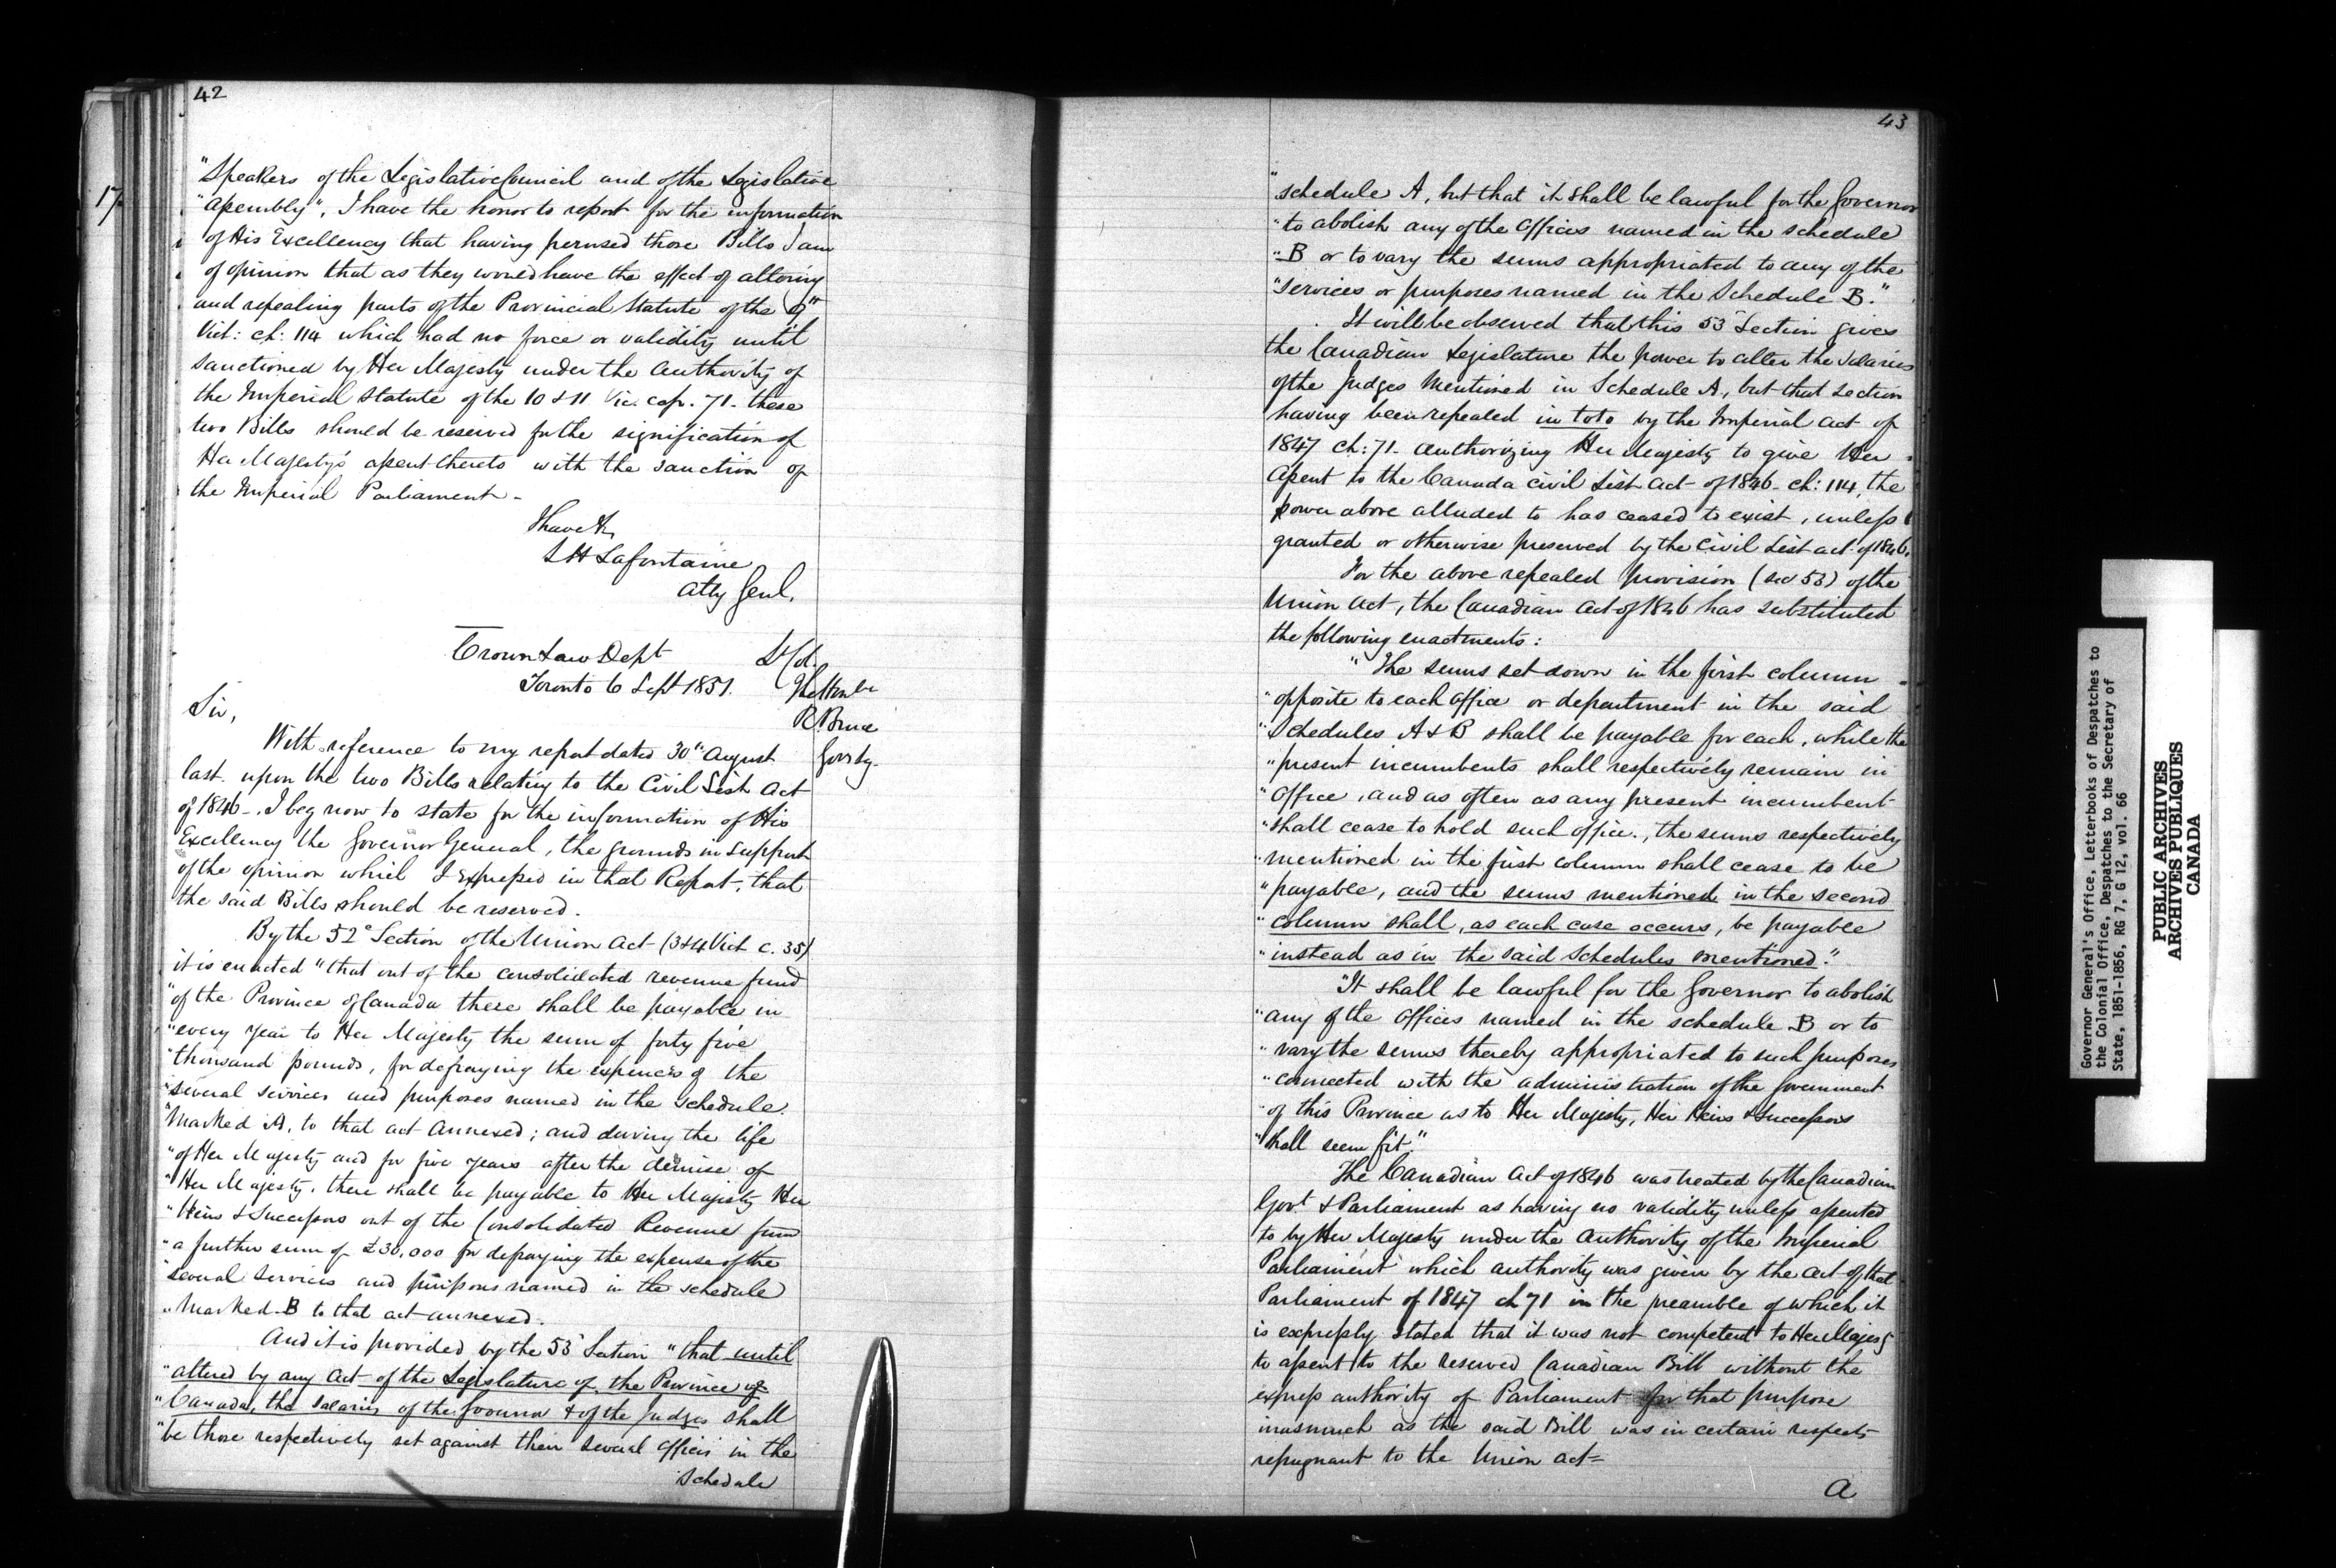 42
17.
"Speakers of the Legislative Council and of the Legislative
"Assembly", I have the honor to report for the information
of His Excellency that having perused those Bills I am
of opinion that as they would have the effect of altering
and repealing parts of the Provincial Statute of the 9th
Vict: ch: 114 which had no force or validity until
sanctioned by Her Majesty under the Authority of
the Imperial Statute of the 10 & 11 Vic. cap. 71. these
two Bills should be reserved for the signification of
Her Majesty's assent thereto with the sanction of
the Imperial Parliament -
I have &c,
L H Lafontaine
Atty Genl.
Crown Law Dept
Toronto 6 Sept 1851.
Lt Col.
The Honble
R Bruce
Govr Sy.
Sir,
With reference to my report dated 30th August
last upon the two Bills relating to the Civil List Act
of 1846 -. I beg now to state for the information of His
Excellency the Governor General, the grounds in support
of the opinion which I expressed in that Report, that
the said Bills should be reserved.
By the 52d Section of the Union Act (3&4 Vict c. 35)
it is enacted "that out of the consolidated revenue fund
"of the Province of Canada there shall be payable in
"every year to Her Majesty the sum of forty five
"thousand pounds, for defraying the expences of the
"several services and purposes named in the schedule
"Marked A, to that act annexed; and during the life
"of Her Majesty and for five years after the demise of
"Her Majesty, there shall be payable to Her Majesty Her
"Heirs & Successors out of the Consolidated Revenue fund
"a further sum of £30,000 for defraying the expense of the
"several services and purposes named in the schedule
"Marked B to that act annexed.
And it is provided by the 53d Section "that until
"altered by any Act of the Legislature of the Province of
"Canada, the salaries of the Governor & of the Judges shall
"be those respectively set against their several offices in the
Schedule
43
"schedule A, but that it shall be lawful for the Governor
"to abolish any of the Offices named in the schedule
"B or to vary the sums appropriated to any of the
"services or purposes named in the Schedule B."
It will be observed that this 53d Section gives
the Canadian Legislature the power to alter the Salaries
of the Judges Mentioned in Schedule A, but that Section
having been repealed in toto by the Imperial Act of
1847 ch: 71. authorizing Her Majesty to give Her
Assent to the Canada Civil List Act of 1846 - ch: 114, the
power above alluded to has ceased to exist, unless
granted or otherwise preserved by the Civil List act of 1846.
For the above repealed provision (sec 53) of the
Union Act, the Canadian Act of 1846 has substituted
the following enactments:
"The sums set down in the first column
"opposite to each office or department in the said
"Schedules A & B shall be payable for each, while the
"present incumbents shall respectively remain in
"Office, and as often as any present incumbent
"shall cease to hold such office, the sums respectively
"mentioned in the first column shall cease to be
"payable, and the sums mentioned in the second
"column shall, as each case occurs, be payable
"instead as in the said Schedules mentioned."
"It shall be lawful for the Governor to abolish
"any of the Offices named in the schedule B or to
"vary the sums thereby appropriated to such purposes
"connected with the administration of the Government
"of this Province as to Her Majesty, Her Heirs & Successors
"shall seem fit."
The Canadian Act of 1846 was treated by the Canadian
Govt & Parliament as having no validity unless assented
to by Her Majesty under the Authority of the Imperial
Parliament which authority was given by the act of that
Parliament of 1847 ch 71 in the preamble of which it
is expressly stated that it was not competent to Her Majesty
to assent to the reserved Canadian Bill without the
express authority of Parliament for that purpose
inasmuch as the said Bill was in certain respects
repugnant to the Union Act =
A
Governor General's Office, Letterbooks of Despatches to
the Colonial Office, Despatches to the Secretary of
State, 1851-1856, RG 7, G 12, vol. 66
PUBLIC ARCHIVES
ARCHIVES PUBLIQUES
CANADA